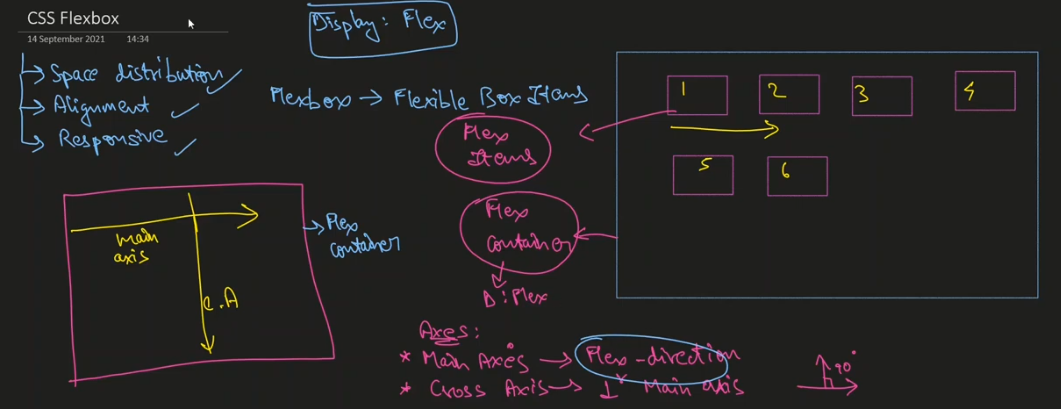 CSS Flexbox
14 September 2021 14:34
Display: Flex
→ Space distribution
→ Alignment
→ Responsive
Flexbox → Flexible Box Items
Flex
Items
Flex
Container
D: Flex
1 2 3 4
5 6
main
axis
C.A
Flex
container
Axes:
* Main Axes → Flex-direction
* Cross Axis → ⊥r Main axis
90°